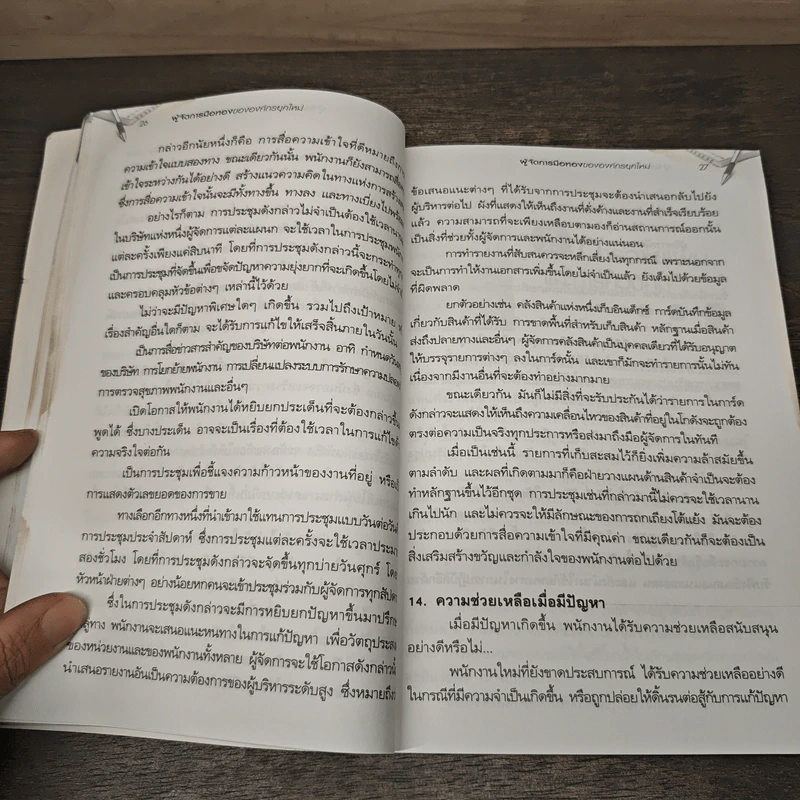 26
ผู้จัดการมือทองขององค์กรยุคใหม่
กล่าวอีกนัยหนึ่งก็คือ การสื่อความเข้าใจที่ดีหมายถึง
ความเข้าใจแบบสองทาง ขณะเดียวกันนั้น พนักงานก็ยังสามารถ
เข้าใจระหว่างกันได้อย่างดี สร้างแนวความคิดในทางแห่งการสร้าง
ซึ่งการสื่อความเข้าใจนั้นจะมีทั้งทางขึ้น ทางลง และทางเบี่ยงไป
อย่างไรก็ตาม การประชุมดังกล่าวไม่จำเป็นต้องใช้เวลา
ในบริษัทแห่งหนึ่งผู้จัดการแต่ละแผนก จะใช้เวลาในการประชุม
แต่ละครั้งเพียงแค่สิบนาที โดยที่การประชุมดังกล่าวนี้จะกระทำ
เป็นการประชุมที่จัดขึ้นเพื่อขจัดปัญหาความยุ่งยากที่จะเกิดขึ้นโดย
และครอบคลุมหัวข้อต่างๆ เหล่านี้ไว้ด้วย
ไม่ว่าจะมีปัญหาพิเศษใดๆ เกิดขึ้น รวมไปถึงเป้าหมาย
เรื่องสำคัญอื่นใดก็ตาม จะได้รับการแก้ไขให้เสร็จสิ้นภายในวันนั้น
เป็นการสื่อข่าวสารสำคัญของบริษัทต่อพนักงาน อาทิ กำหนด
ของบริษัท การโยกย้ายพนักงาน การเปลี่ยนแปลงระบบการรักษาความปลอด
การตรวจสุขภาพพนักงานและอื่นๆ
เปิดโอกาสให้พนักงานได้หยิบยกประเด็นที่จะต้องกล่าวขึ้น
พูดได้ ซึ่งบางประเด็น อาจจะเป็นเรื่องที่ต้องใช้เวลาในการแก้ไข
ความจริงใจต่อกัน
เป็นการประชุมเพื่อชี้แจงความก้าวหน้าของงานที่อยู่ หรือ
การแสดงตัวเลขยอดของการขาย
ทางเลือกอีกทางหนึ่งที่นำเข้ามาใช้แทนการประชุมแบบวันต่อวัน
การประชุมประจำสัปดาห์ ซึ่งการประชุมแต่ละครั้งจะใช้เวลาประมา
สองชั่วโมง โดยที่การประชุมดังกล่าวจะจัดขึ้นทุกบ่ายวันศุกร์ โดย
หัวหน้าฝ่ายต่างๆ อย่างน้อยหกคนจะเข้าประชุมร่วมกับผู้จัดการทุกสัปดา
ซึ่งในการประชุมดังกล่าวจะมีการหยิบยกปัญหาขึ้นมาปรึก
สู่ทาง พนักงานจะเสนอแนะหนทางในการแก้ปัญหา เพื่อวัตถุประสง
ของหน่วยงานและของพนักงานทั้งหลาย ผู้จัดการจะใช้โอกาสดังกล่าว
นำเสนอรายงานอันเป็นความต้องการของผู้บริหารระดับสูง ซึ่งหมายถึง
ผู้จัดการมือทองขององค์กรยุคใหม่
27
ข้อเสนอแนะต่างๆ ที่ได้รับจากการประชุมจะต้องนำเสนอกลับไปยัง
ผู้บริหารต่อไป ผังที่แสดงให้เห็นถึงงานที่คั่งค้างและงานที่สำเร็จเรียบร้อย
แล้ว ความสามารถที่จะเพียงเหลือบตามองก็อ่านสถานการณ์ออกนั้น
เป็นสิ่งที่ช่วยทั้งผู้จัดการและพนักงานได้อย่างแน่นอน
การทำรายงานที่สับสนควรจะหลีกเลี่ยงในทุกกรณี เพราะนอกจาก
จะเป็นการทำให้งานเอกสารเพิ่มขึ้นโดยไม่จำเป็นแล้ว ยังเต็มไปด้วยข้อมูล
ที่ผิดพลาด
ยกตัวอย่างเช่น คลังสินค้าแห่งหนึ่งเก็บอินเด็กซ์ การ์ดบันทึกข้อมูล
เกี่ยวกับสินค้าที่ได้รับ การขาดพื้นที่สำหรับเก็บสินค้า หลักฐานเมื่อสินค้า
ส่งถึงปลายทางและอื่นๆ ผู้จัดการคลังสินค้าเป็นบุคคลเดียวที่ได้รับอนุญาต
ให้บรรจุรายการต่างๆ ลงในการ์ดนั้น และเขาก็มักจะทำรายการนั้นไม่ทัน
เนื่องจากมีงานอื่นที่จะต้องทำอย่างมากมาย
ขณะเดียวกัน มันก็ไม่มีสิ่งที่จะรับประกันได้ว่ารายการในการ์ด
ดังกล่าวจะแสดงให้เห็นถึงความเคลื่อนไหวของสินค้าที่อยู่ในโกดังจะถูกต้อง
ตรงต่อความเป็นจริงทุกประการหรือส่งมาถึงมือผู้จัดการในทันที
เมื่อเป็นเช่นนี้ รายการที่เก็บสะสมไว้ก็ยิ่งเพิ่มความล้าสมัยขึ้น
ตามลำดับ และผลที่เกิดตามมาก็คือฝ่ายวางแผนด้านสินค้าจำเป็นจะต้อง
ทำหลักฐานขึ้นไว้อีกชุด การประชุมเช่นที่กล่าวมานี้ไม่ควรจะใช้เวลานาน
เกินไปนัก และไม่ควรจะให้มีลักษณะของการถกเถียงโต้แย้ง มันจะต้อง
ประกอบด้วยการสื่อความเข้าใจที่มีคุณค่า ขณะเดียวกันก็จะต้องเป็น
สิ่งเสริมสร้างขวัญและกำลังใจของพนักงานต่อไปด้วย
14. ความช่วยเหลือเมื่อมีปัญหา
เมื่อมีปัญหาเกิดขึ้น พนักงานได้รับความช่วยเหลือสนับสนุน
อย่างดีหรือไม่...
พนักงานใหม่ที่ยังขาดประสบการณ์ ได้รับความช่วยเหลืออย่างดี
ในกรณีที่มีความจำเป็นเกิดขึ้น หรือถูกปล่อยให้ดิ้นรนต่อสู้กับการแก้ปัญหา